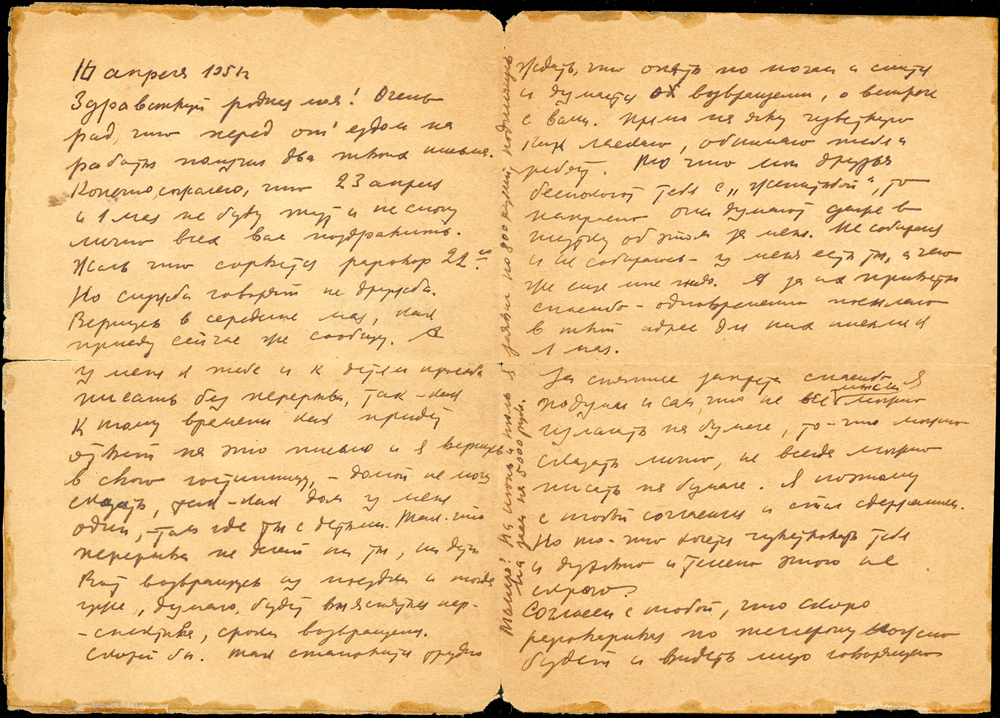 16 апреля 195 г.
Здравствуй родная моя! Очень
рад, что перед от'ездом на
работы получил два твоих письма.
Конечно сожалею, что 23 апреля
и 1 мая не буду тут и не смогу
лично всех вас поздравить.
Жаль что сорвётся разговор 22го
Но служба говорят не дружба.
Вернусь в середине мая, как
приеду сейчас же сообщу. А
у меня к тебе и к детям просьба
писать без перерыва, так-как
к тому времени как придёт
ответ на это письмо и я вернусь
в свою гостиницу, - домой не могу
сказать, так-как дом у меня
один, - там где ты с детьми. Так-что
перерыва не делай ни ты, ни дети
Вот возвращусь из поездки и тогда
уже, думаю, будет выясняться пер-
-спектива, сроки возвращения.
Скорей бы. Так становится трудно
ждать, что опять по ночам и снится
и думается об возвращении, о встрече
с вами. Прямо на яву чувствую
как ласкаю, обнимаю тебя и
ребят. Но что мои друзья
беспокоят тебя с "женитьбой", то
напрасно они думают даже в
шутку об этом за меня. Не собираюсь
и не собирался - у меня есть ты, а чего
же еще мне надо. Я за их приветы
спасибо - одновременно посылаю
в твой адрес для них письма к
1 мая.
За снятие запрета спасибо. Я
подумал и сам, что не все мысли можно
излагать на бумаге, то-что можно
сказать лично, не всегда можно
писать на бумаге. Я поэтому
с тобой согласен и стал сдержаннее.
Но то-что хочется чувствовать тебя
и душевно и телесно этого не
скрою?
Согласен с тобой, что скоро
разговаривая по телефону можно
будет и видеть лицо говорящего
Машу! На июнь и июль я заявил по 800 рублей подпишусь
на заем на 5000 руб.